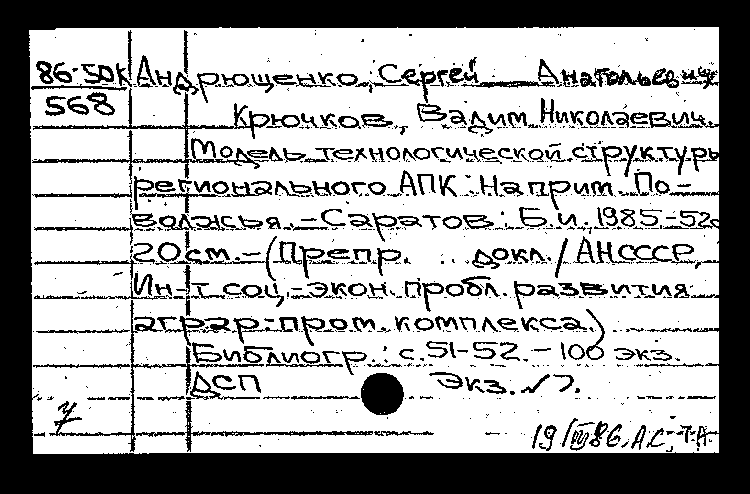 86-50К Андрющенко, Сергей Анатольевич
568 Крючков, Вадим Николаевич.
Модель технологической структуры
регионального АПК: На прим. По-
волжья. - Саратов: Б.и., 1985-52с
20см. - (Препр. .. докл. / АН СССР,
Ин-т соц.-экон. пробл. развития
аграр.-пром. комплекса.)
Библиогр.: с. 51-52. - 100 экз.
ДСП Экз. √7.
7
19/III 86. А.С., Т.А.